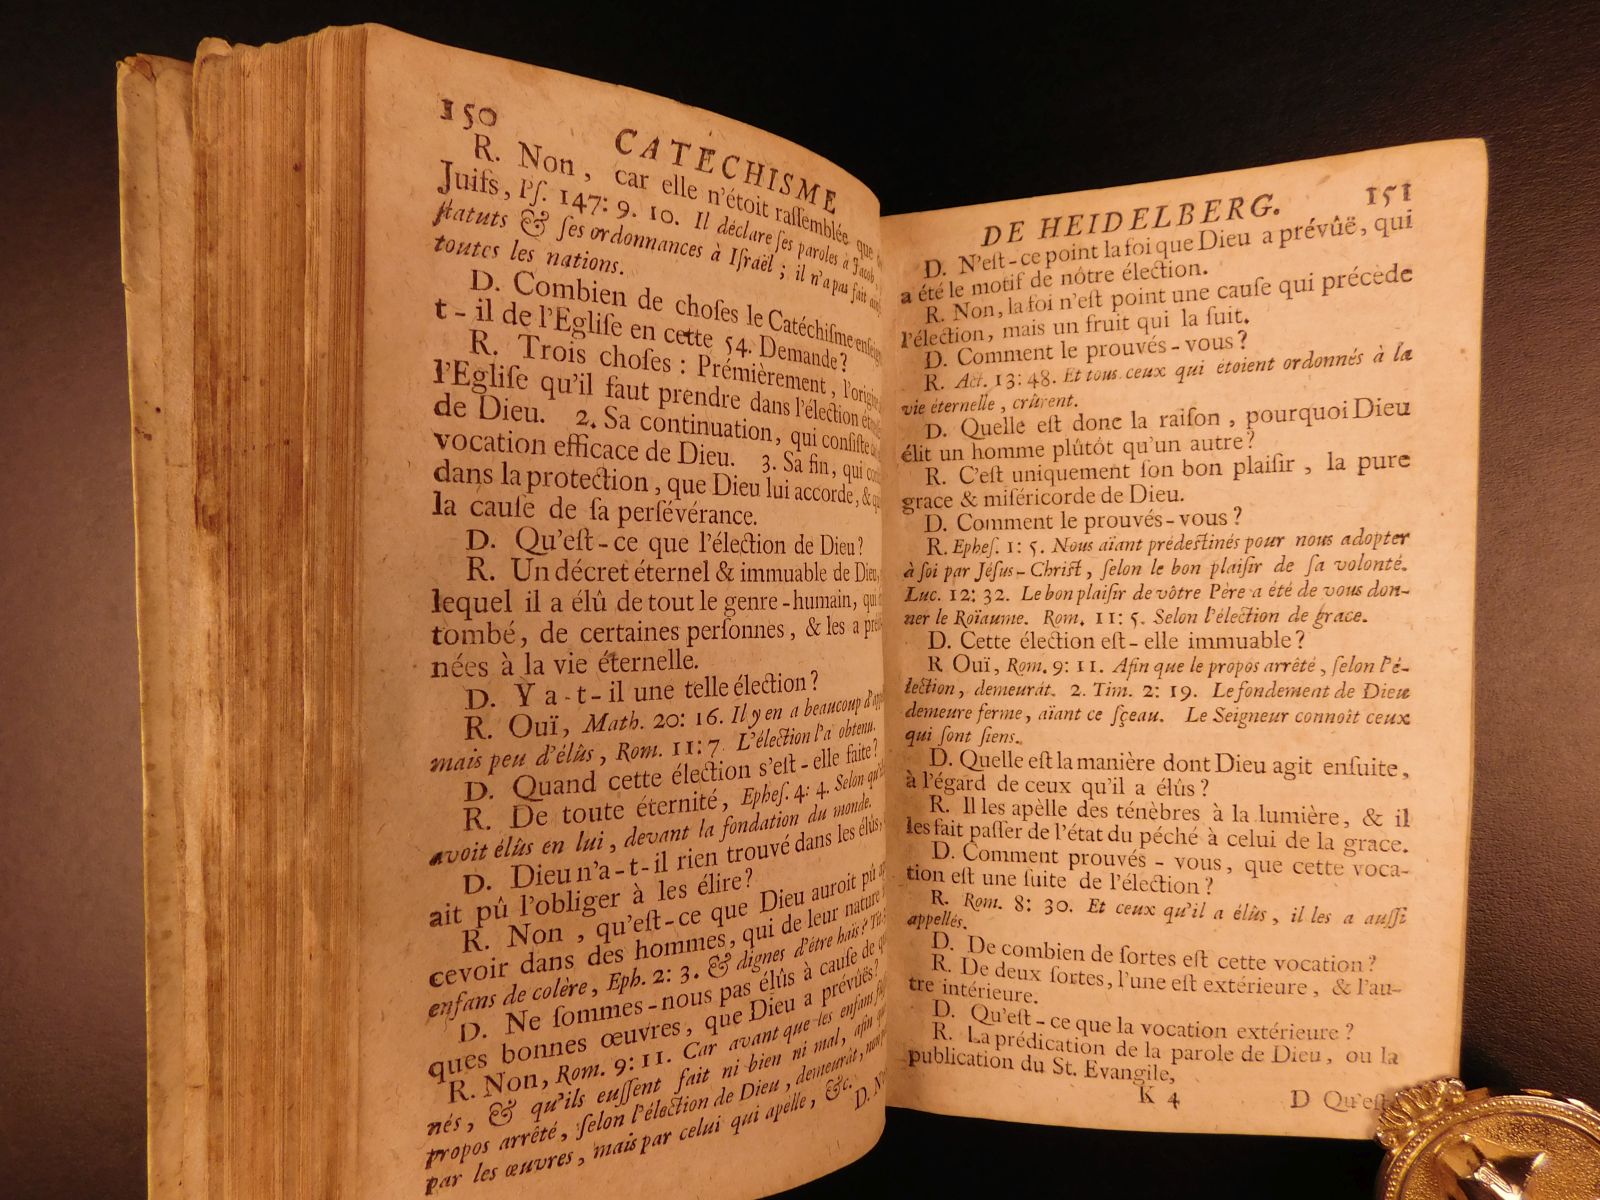 150
CATÉCHISME
R. Non, car elle n'étoit raſſemblée que
Juifs, Pſ. 147: 9. 10. Il déclare ſes paroles à Jacob,
ſtatuts & ſes ordonnances à Iſraël; il n'a pas fait
toutes les nations.
D. Combien de choſes le Catéchiſme
t-il de l'Egliſe en cette 54. Demande?
R. Trois choſes: Prémièrement,
l'Egliſe qu'il faut prendre dans l'élection
de Dieu. 2. Sa continuation, qui conſiſte
vocation efficace de Dieu. 3. Sa fin, qui
dans la protection, que Dieu lui accorde, &
la cauſe de ſa perſévérance.
D. Qu'eſt-ce que l'élection de Dieu?
R. Un décret éternel & immuable de Dieu,
lequel il a élû de tout le genre-humain, qui
tombé, de certaines perſonnes, & les a
nées à la vie éternelle.
D. Y a-t-il une telle élection?
R. Ouï, Math. 20: 16. Il y en a beaucoup
mais peu d'élûs, Rom. 11: 7. L'élection l'a obtenu.
D. Quand cette élection s'eſt-elle faite?
R. De toute éternité, Epheſ. 4: 4. Selon
avoit élûs en lui, devant la fondation du monde.
D. Dieu n'a-t-il rien trouvé dans les élûs,
ait pû l'obliger à les élire?
R. Non, qu'eſt-ce que Dieu auroit pû
cevoir dans des hommes, qui de leur nature
enfans de colère, Eph. 2: 3. & dignes d'être haïs?
D. Ne ſommes-nous pas élûs à cauſe de
ques bonnes œuvres, que Dieu a prévûës?
R. Non, Rom. 9: 11. Car avant que les enfans
nés, & qu'ils euſſent fait ni bien ni mal, afin
propos arrêté, ſelon l'élection de Dieu, demeurât,
par les œuvres, mais par celui qui apèlle, &c.
D.
DE HEIDELBERG. 151
D. N'eſt-ce point la foi que Dieu a prévûë, qui
a été le motif de nôtre élection.
R. Non, la foi n'eſt point une cauſe qui précède
l'élection, mais un fruit qui la ſuit.
D. Comment le prouvés-vous?
R. Act. 13: 48. Et tous ceux qui étoient ordonnés à la
vie éternelle, crûrent.
D. Quelle eſt donc la raiſon, pourquoi Dieu
élit un homme plûtôt qu'un autre?
R. C'eſt uniquement ſon bon plaiſir, la pure
grace & miſéricorde de Dieu.
D. Comment le prouvés-vous?
R. Epheſ. 1: 5. Nous aïant prédeſtinés pour nous adopter
à ſoi par Jéſus-Chriſt, ſelon le bon plaiſir de ſa volonté.
Luc. 12: 32. Le bon plaiſir de vôtre Père a été de vous don-
ner le Roïaume. Rom. 11: 5. Selon l'élection de grace.
D. Cette élection eſt-elle immuable?
R Ouï, Rom. 9: 11. Afin que le propos arrêté, ſelon l'é-
lection, demeurât. 2. Tim. 2: 19. Le fondement de Dieu
demeure ferme, aïant ce ſçeau. Le Seigneur connoît ceux
qui ſont ſiens.
D. Quelle eſt la manière dont Dieu agit enſuite,
à l'égard de ceux qu'il a élûs?
R. Il les apèlle des ténèbres à la lumière, & il
les fait paſſer de l'état du péché à celui de la grace.
D. Comment prouvés-vous, que cette voca-
tion eſt une ſuite de l'élection?
R. Rom. 8: 30. Et ceux qu'il a élûs, il les a auſſi
appellés.
D. De combien de ſortes eſt cette vocation?
R. De deux ſortes, l'une eſt extérieure, & l'au-
tre intérieure.
D. Qu'eſt-ce que la vocation extérieure?
R. La prédication de la parole de Dieu, ou la
publication du St. Evangile,
K 4 D Qu'eſt-